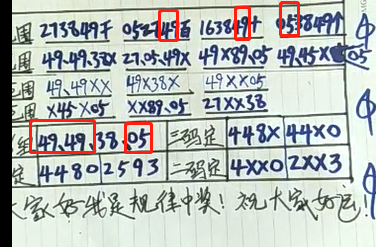 围 273849千 052749百 163849十 0538499个
围 49.49.38X 27.05.49X 49X89.05 49.45X05
围 49.49XX 49X38X 49XX05
围 XX45X05 XX89.05 27XX38
组 49.49.38.05 三码定 448X 44X0
定 4480 2593 二码定 4XX0 2XX3
大家好我是规律中奖！祝大家好运！